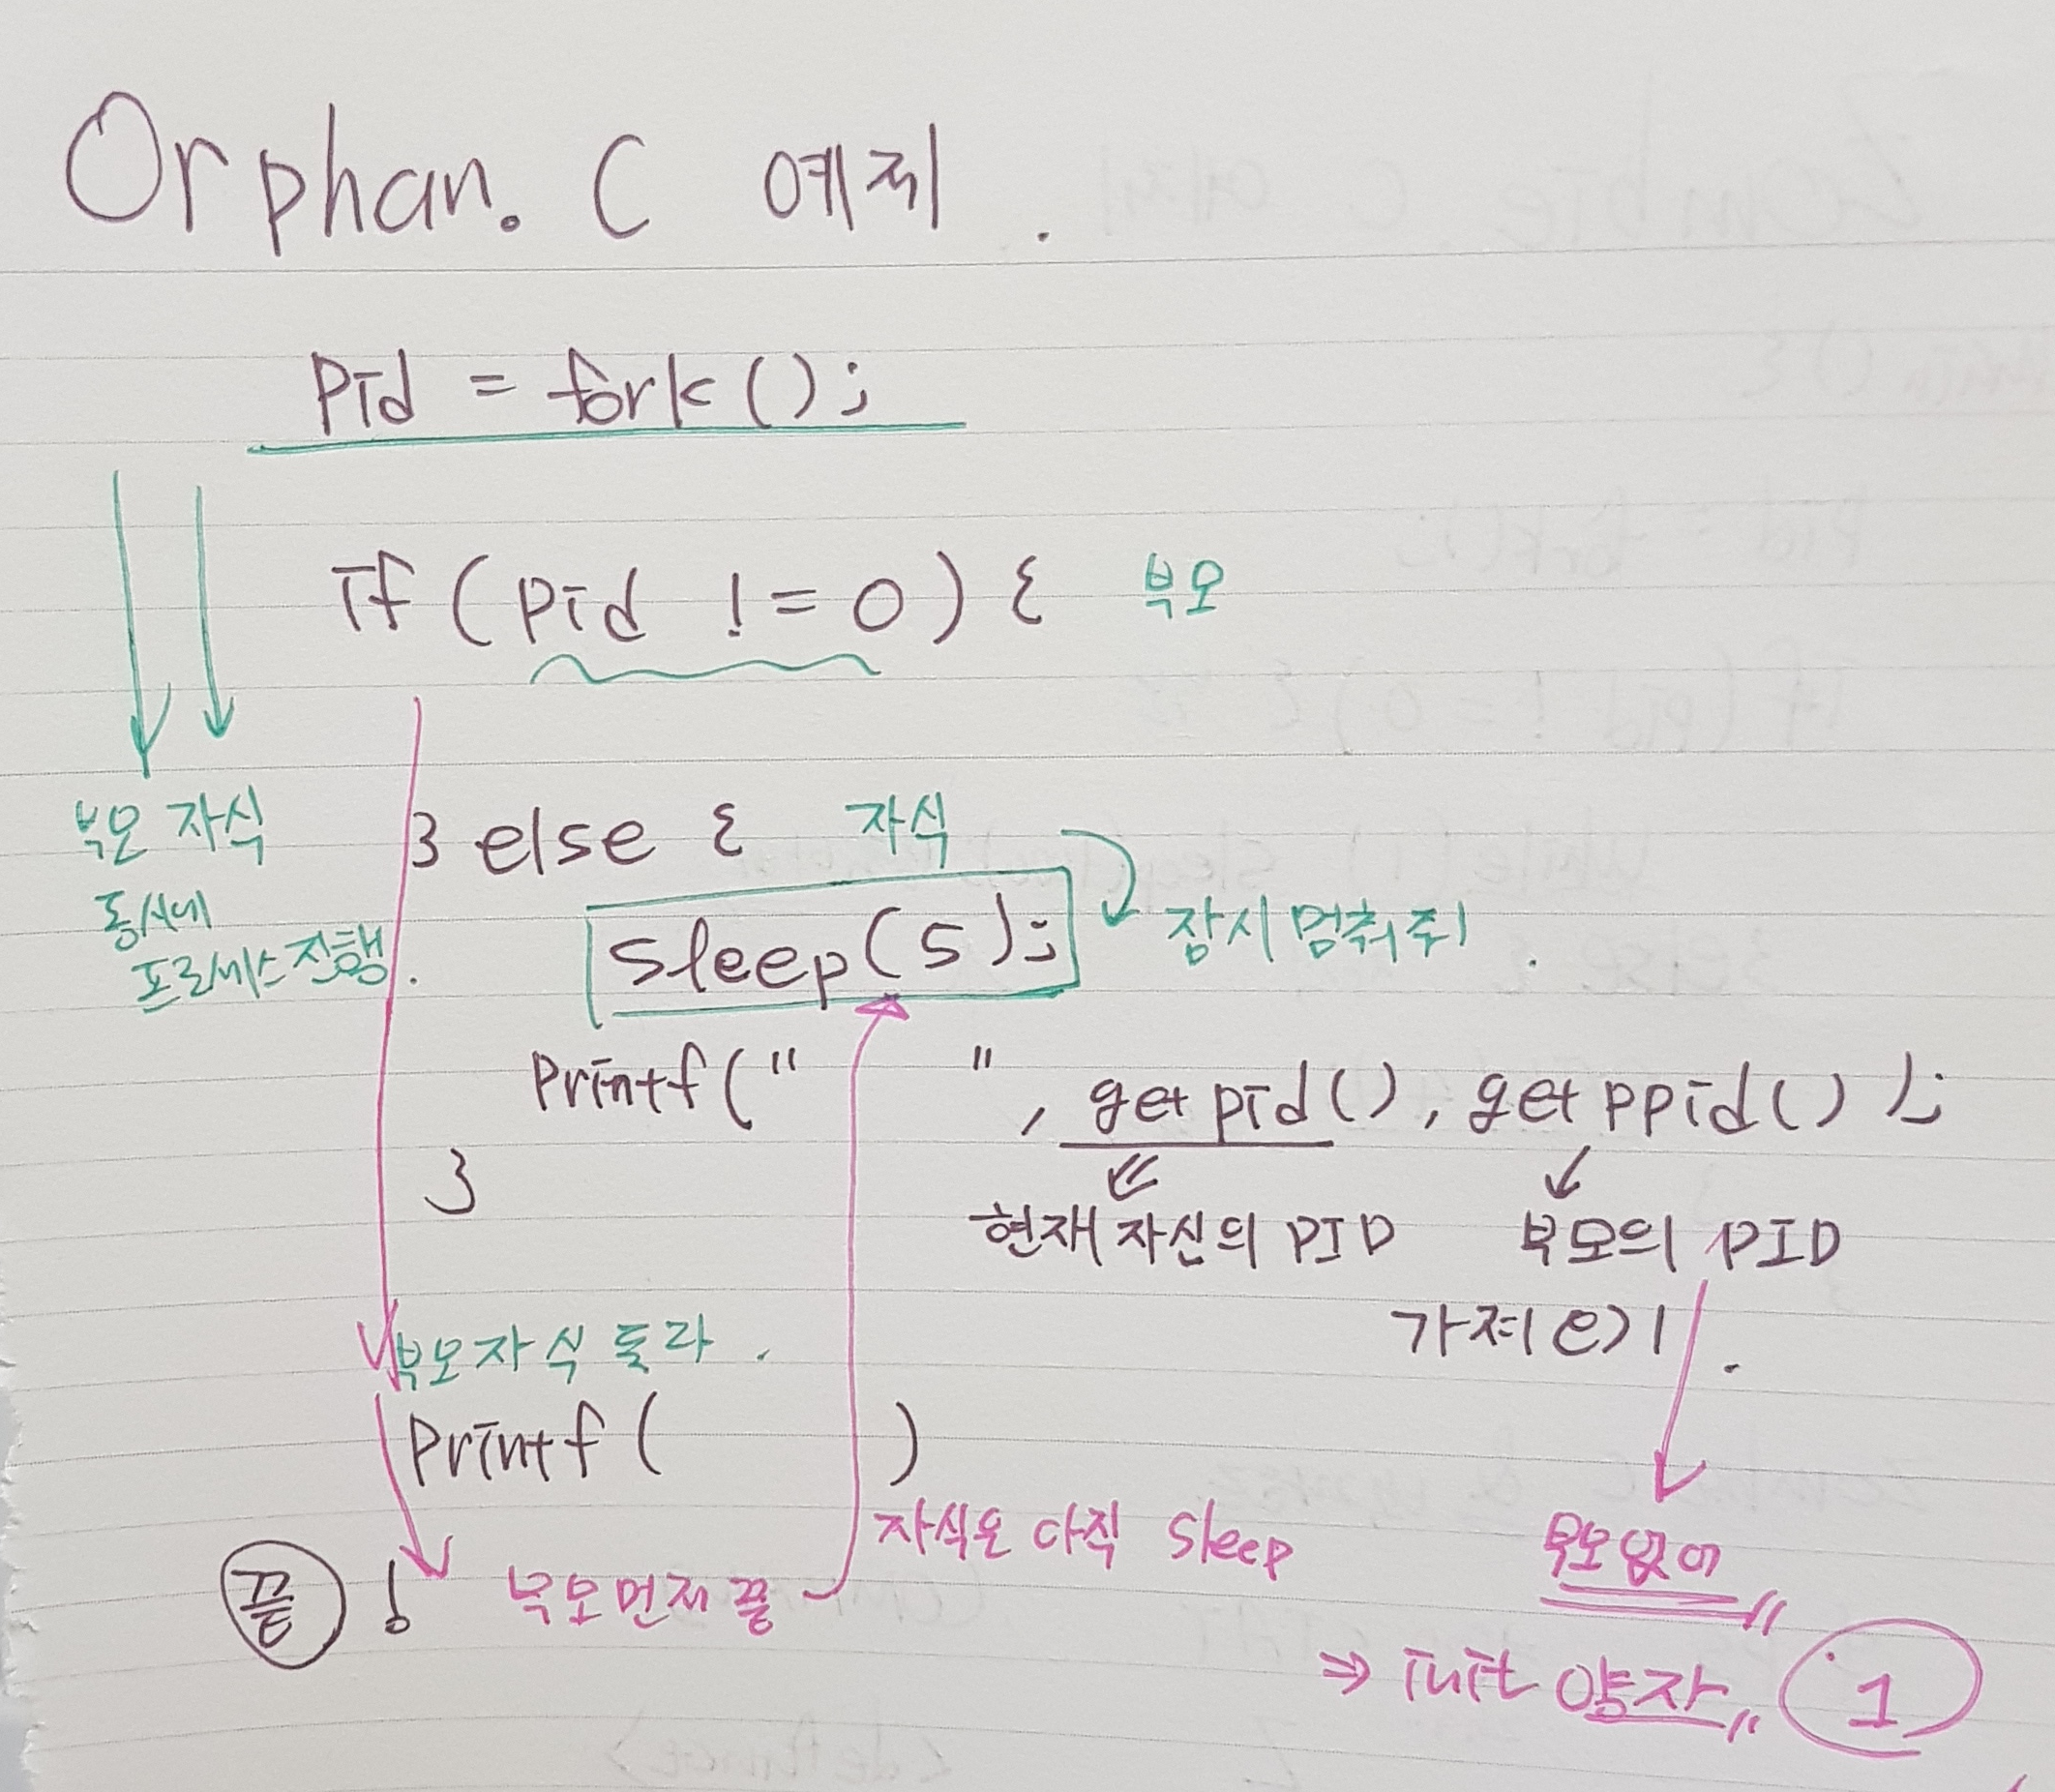 Orphan. C 예제.
pid = fork();
if (pid != 0) { 부모
부모 자식
동시에
프로세스 진행.
} else { 자식
sleep(5); 잠시 멈춰줘.
printf(" ", getpid(), getppid() );
}
현재 자신의 PID 부모의 PID
가져오기.
부모 자식 둘 다.
printf( )
자식은 아직 sleep
부모 없어
끝! 부모 먼저 끝
⇒ init 양자 1